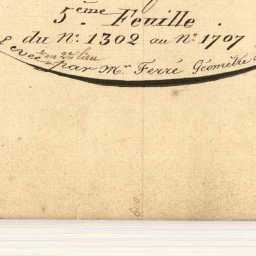 5.ème Feuille.
du N.º 1302 au N.º 1707
Levée
par M.r Ferré Géomètre